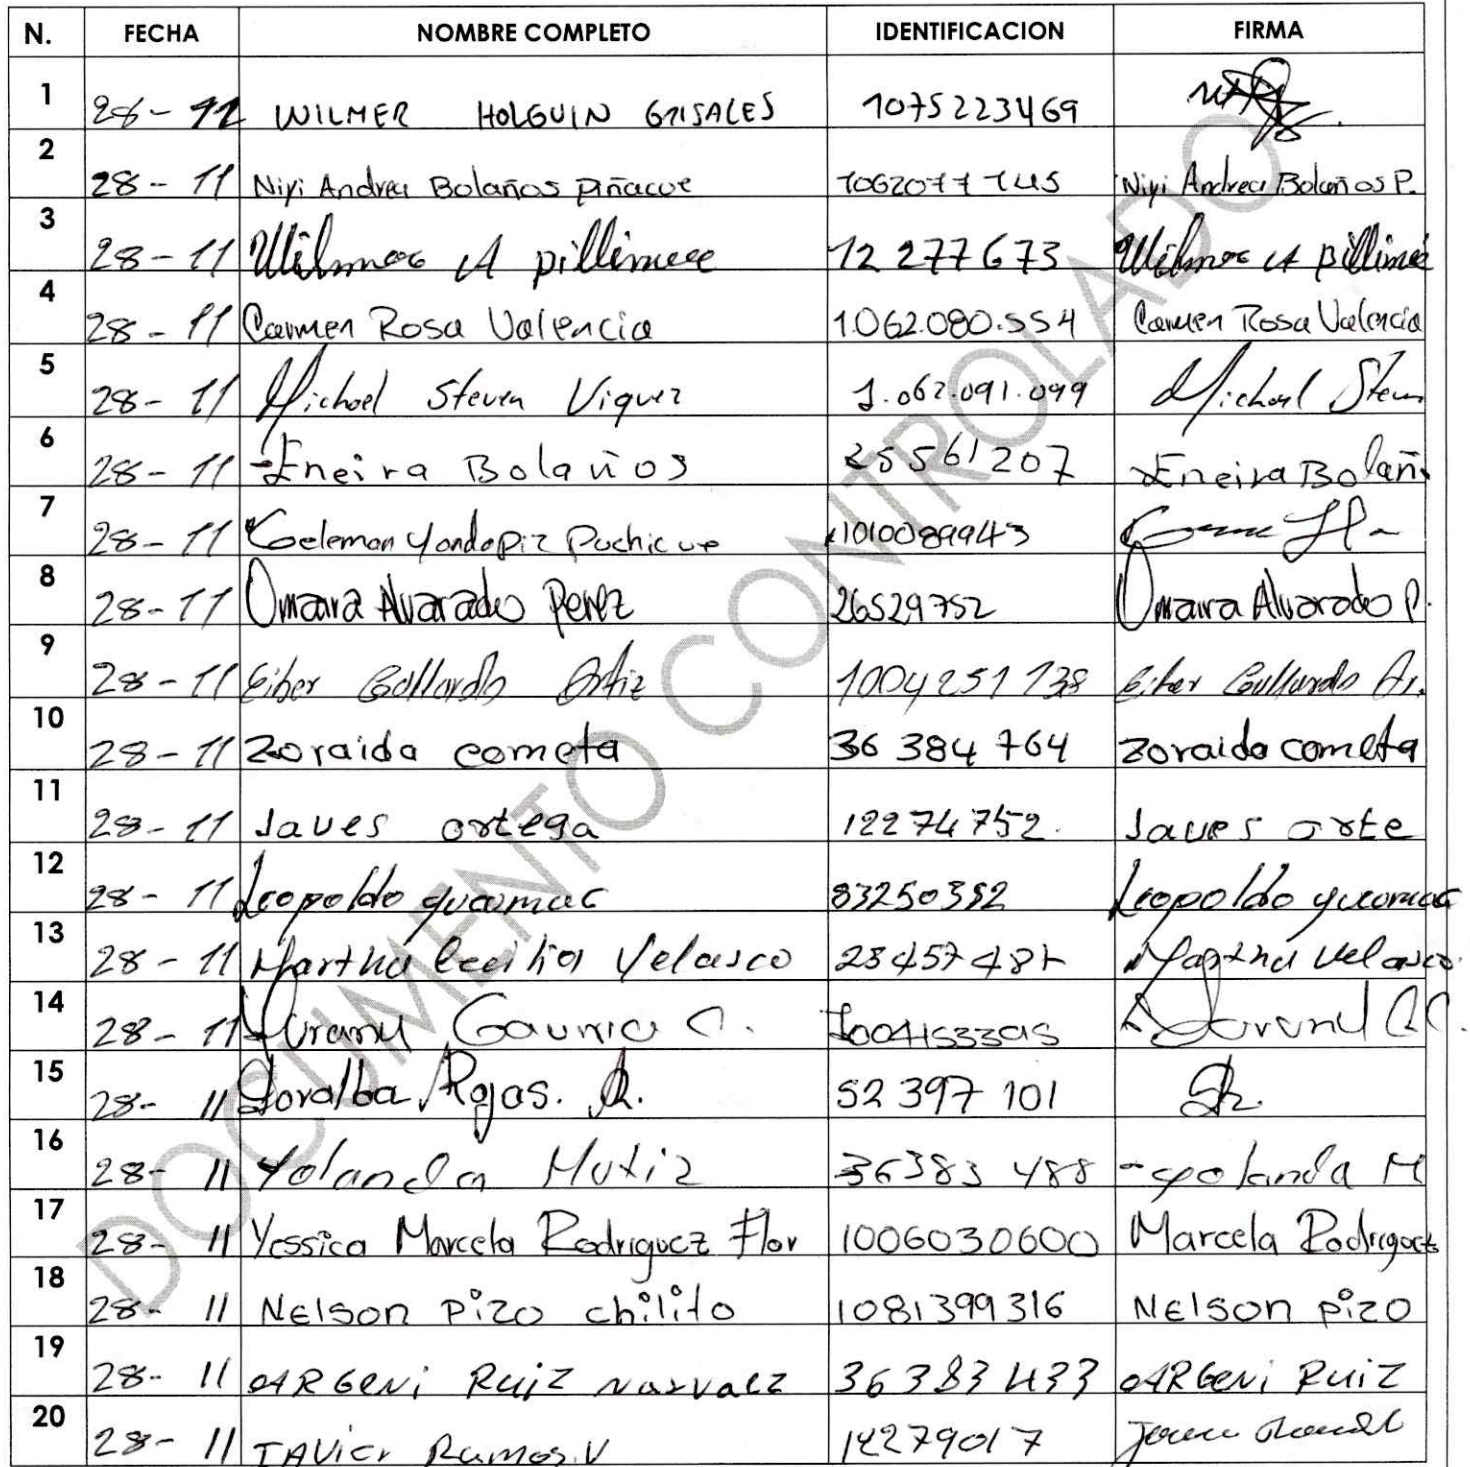 N. FECHA NOMBRE COMPLETO IDENTIFICACION FIRMA
1 28-11 WILMER HOLGUIN GRISALES 1075223469
2 28-11 Niyi Andrea Bolaños Piñacue 1062077145 Niyi Andrea Bolaños P.
3 28-11 A pillimue 12 277673 A pillimue
4 28-11 Carmen Rosa Valencia 1.062.080.554 Carmen Rosa Valencia
5 28-11 Michael Steven Viquez 1.062.091.099 Michael Steven
6 28-11 Eneira Bolaños 25561207 Eneira Bolañ
7 28-11 1010089943
8 28-11 Omaira Alvarado Perez 26529752 Omaira Alvarado P.
9 28-11 Eiber Gallardo Ortiz 1004251138 Eiber Gallardo Or.
10 28-11 Zoraida cometa 36 384 764 Zoraida cometa
11 28-11 Javes ortega 12274752. Javes orte
12 28-11 Leopoldo guamac 83250392 Leopoldo guamac
13 28-11 Martha Cecilia Velasco Martha Velasco.
14 28-11 Gaviria C.
15 28-11 Doralba Rojas. R. 52 397 101
16 28-11 Yolanda Mutiz 36383 488 -yolanda M
17 28-11 Yessica Marcela Rodriguez Flor 1006030600 Marcela Rodriguez
18 28-11 NElson Pizo chilito 1081399316 NElson pizo
19 28-11 ARGENi RUiZ Narvaez 36383433 ARGENi RUiZ
20 28-11 JAVier Ramos.V 12279017
DOCUMENTO CONTROLADO